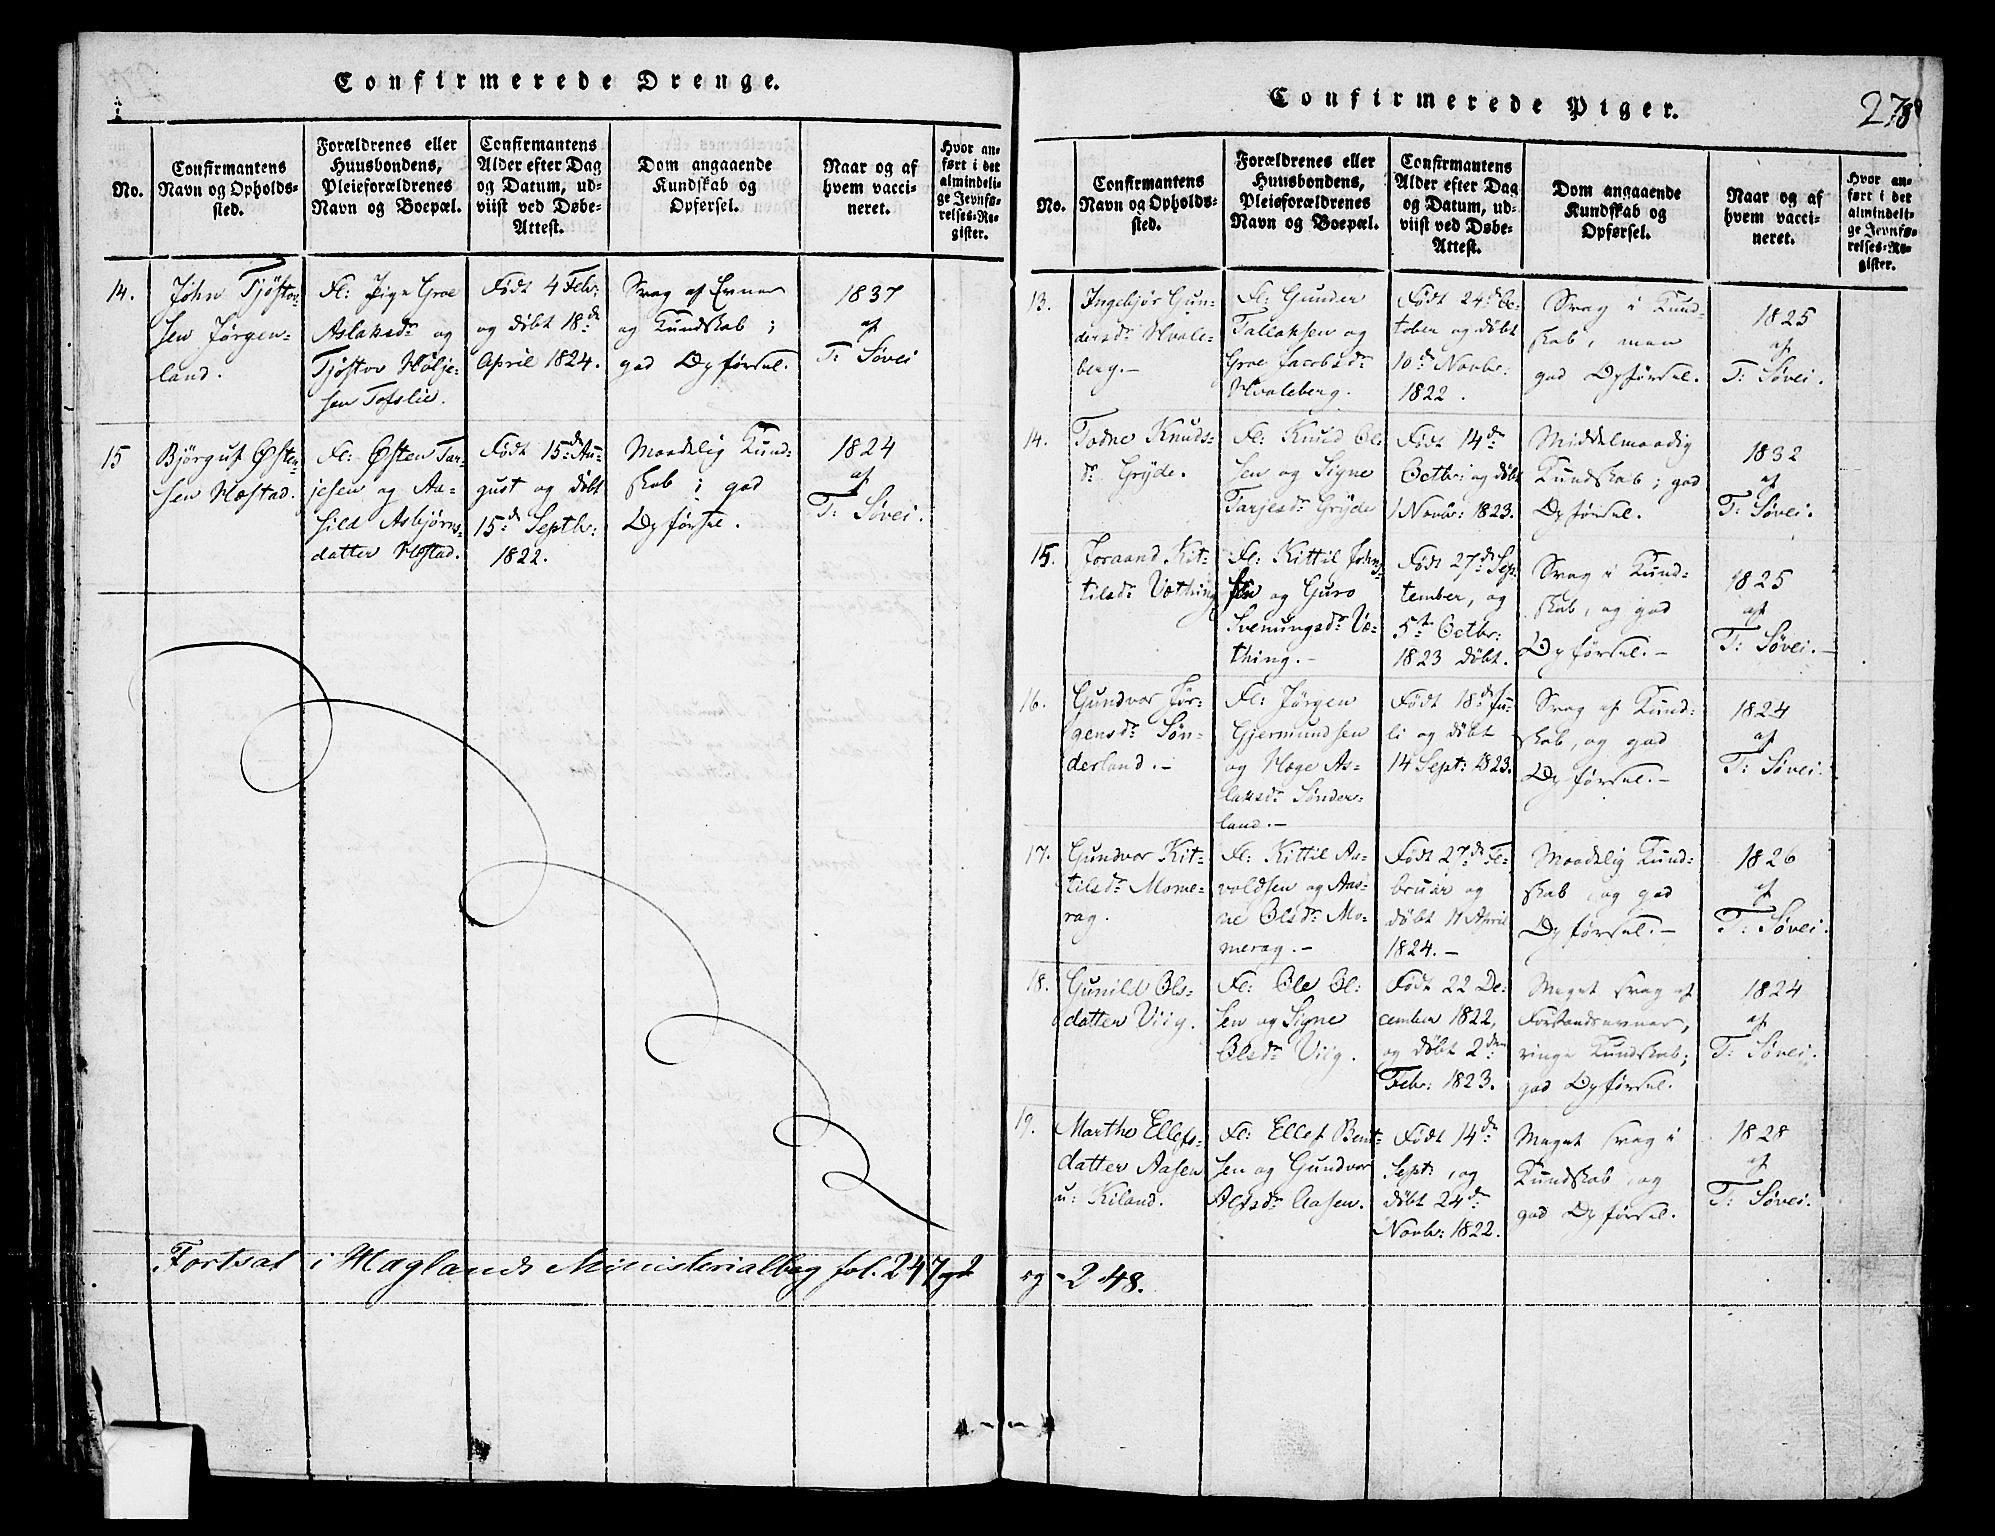 Confirmerede Drenge.
No.
Confirmantens
Navn og Opholds-
sted.
Forældrenes eller
Huusbondens,
Pleieforældrenes
Navn og Boepæl.
Confirmantens
Alder efter Dag
og Datum, ud-
viist ved Døbe-
Attest.
Dom angaaende
Kundskab og
Opførsel.
Naar og af
hvem vacci-
neret.
Hvor an-
ført i det
almindeli-
ge Jevnfø-
relses-Re-
gister.
14.
John Tjöstov-
sen Jørgen-
land.
Fl: Pige Groe
Aslaksdr og
Tjöstov Hölje-
sen Tofslie.
Født 4 Febr:
og döbt 18de
April 1824.
Svag af Evner
og Kundskab;
god Opförsel.
1837
af
T: Søvei
15
Björguf Østen-
sen Hæstad.
Fl: Østen Tar-
jesen og Aa-
sild Asbjörns-
datter Hæstad.
Født 15de Au-
gust og döbt
15de Septbr:
1822.
Maadelig Kund-
skab; god
Opførsel.
1824
af
T: Søvei.
Fortsat i Høglands Ministerialbog fol. 247
og 248.
Confirmerede Piger.
278
No.
Confirmantens
Navn og Opholds-
sted.
Forældrenes eller
Huusbondens,
Pleieforældrenes
Navn og Boepæl.
Confirmantens
Alder efter Dag
og Datum, ud-
viist ved Døbe-
Attest.
Dom angaaende
Kundskab og
Opførsel.
Naar og af
hvem vacci-
neret.
Hvor an-
ført i det
almindeli-
ge Jevnfø-
relses-Re-
gister.
13.
Ingebjör Gun-
dersdr Hvale-
berg.-
Fl: Gunder
Tallaksen og
Groe Jacobsdr
Hvaleberg.
Født 24de Oc-
tober og döbt
10de Novbr:
1822.
Svag i Kund-
skab, men
god Opførsel.
1825
af
T: Søvei.
14.
Todne Knuds-
dr Gryde.
Fl: Knud Ol-
sen og Signe
Tarjesdr Gryde
Født 14de
Octbr: og döbt
1 Novbr: 1823.
Middelmaadig
Kundskab; god
Opførsel.
1832
af
T: Søvei.
15.
Joraand Kit-
tilsdr Væthing
Fl: Kittil John-
sen og Guro
Svenungsdr Væ-
thing.-
Født 27de Sep-
tember, og
5te Octbr:
1823 döbt.
Svag i Kund-
skab, og god
Opførsel.-
1825
af
T: Søvei.-
16.
Gundvor Jör-
gensdr Søn-
derland.-
Fl: Jörgen
Gjermundsen
og Hæge As-
laksdr Sønder-
land.-
Født 18de Ju-
li og döbt
14 Sept: 1823.
Svag af Kund-
skab, og god
Opførsel.-
1824
af
T: Søvei.
17.
Gundvor Kit-
tilsdr Mome-
rag.
Fl: Kittil Aa-
voldsen og Aas-
ne Olsdr Mo-
merag.-
Født 27de Fe-
bruar og
döbt 11 April
1824.-
Maadelig Kund-
skab, og god
Opførsel.-
1826
af
T: Søvei.
18.
Gunild Ols-
datter Viig.
Fl: Ole Ol-
sen og Signe
Olsdr Viig.
Født 22 De-
cember 1822,
og döbt 2den
Febr: 1823.
Meget svag af
Forstandsevner,
ringe Kundskab;
god Opførsel.
1824
af
T: Søvei.
19.
Marthe Ellefs-
datter Aasen
u: Kiland.
Fl: Ellef Bent-
sen og Gundvor
Alfsdr Aasen.
Født 14de
Sept: , og
döbt 24de
Novbr: 1822.
Meget svag i
Kundskab, og
god Opførsel.
1828
af
T: Søvei.